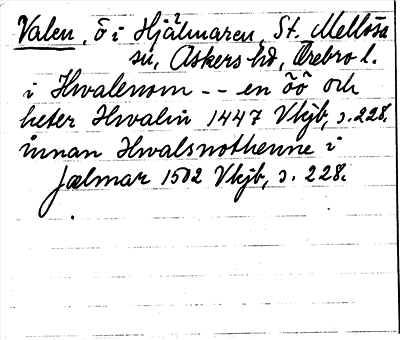 Valen, ö i Hjälmaren, St. Mellösa
sn, Askers hd, Örebro l.
i Hwalenom -- en öö och
heter Hwalin 1447 Vkjb, s. 228.
innan Hwalsnothenne i
Jælmar 1502 Vkjb, s. 228.